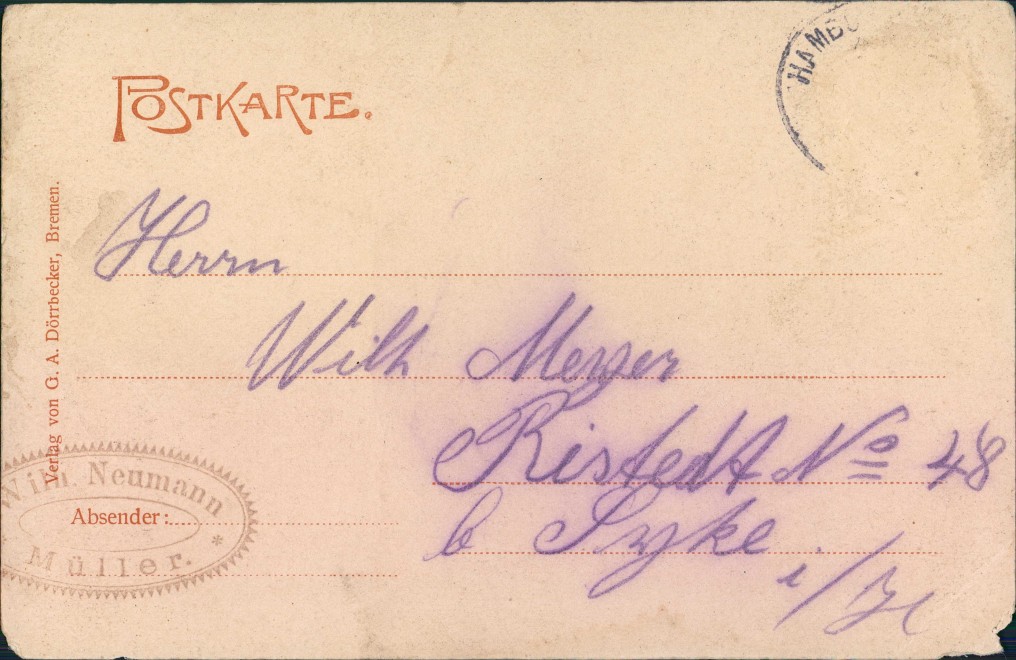 HAMBU
POSTKARTE.
Verlag von G. A. Dörrbecker, Bremen.
Herrn
Wilh Meyer
Ristedt No 48
b Syke.
i/H
Wilh. Neumann
Absender:
Müller. *